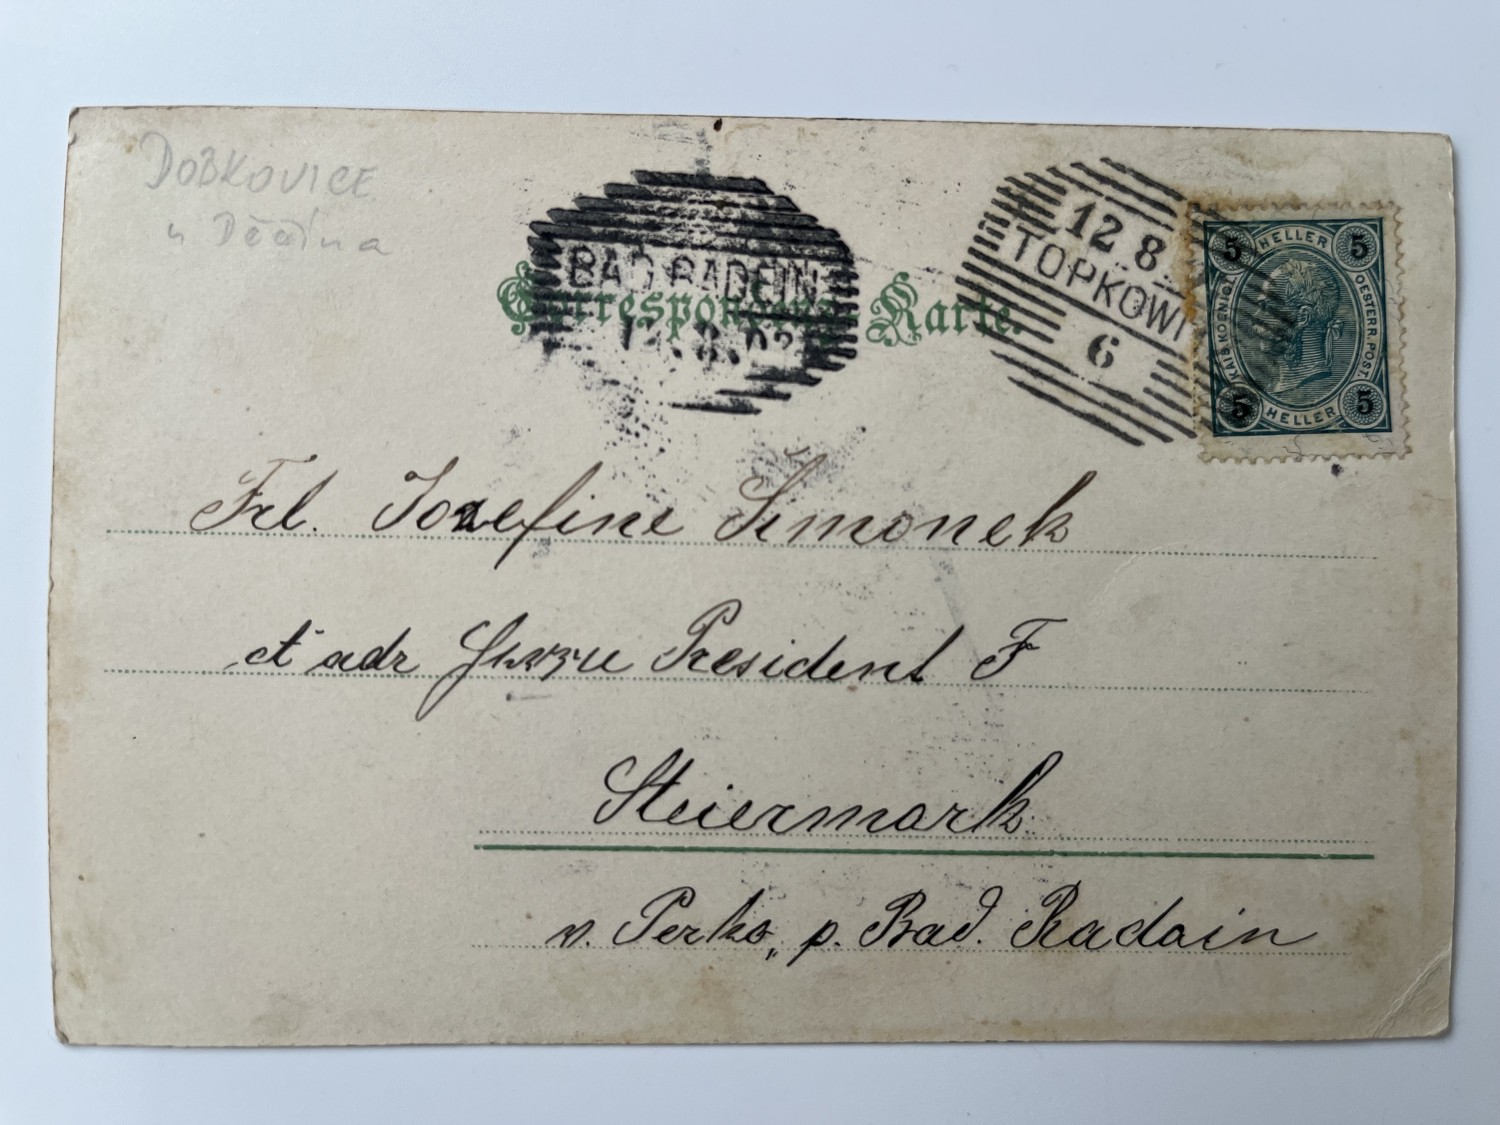 DOBKOVICE
u Děčína
BAD RADEIN
8.02
Correspondenz Karte.
12 8
TOPKOWI
6
5 HELLER 5
KAIS. KOENIGL.
OESTERR. POST.
5 HELLER 5
Frl. Josefine Simonek
adr President F
Steiermark
v. Perko, p. Bad. Radain